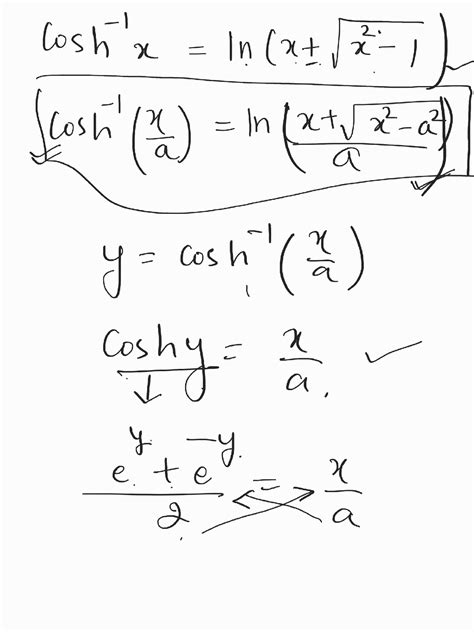 cosh⁻¹ x = ln (x ± √(x² − 1))
cosh⁻¹ (x/a) = ln ((x + √(x² − a²))/a)
y = cosh⁻¹ (x/a)
cosh y = x/a
(e^y + e^−y)/2 = x/a